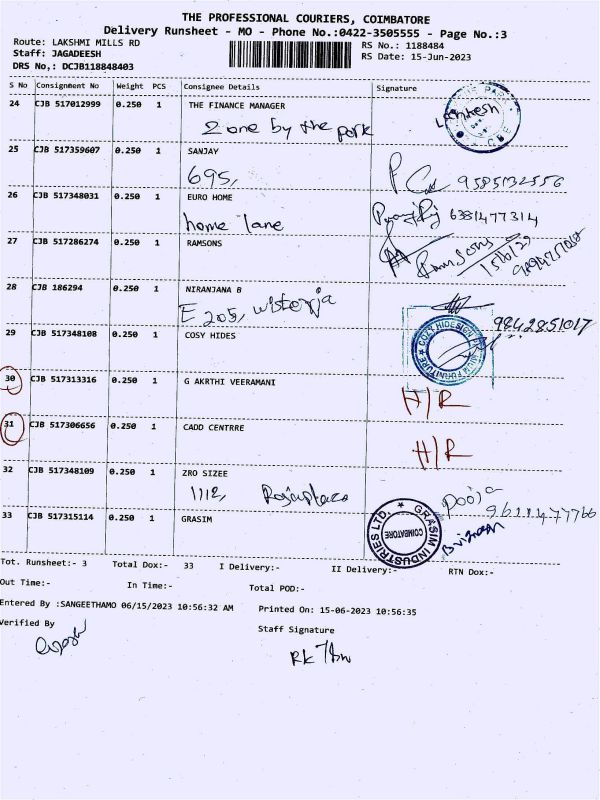 THE PROFESSIONAL COURIERS, COIMBATORE
Delivery Runsheet - MO - Phone No.:0422-3505555 - Page No.:3
Route: LAKSHMI MILLS RD
RS No.: 1188484
Staff: JAGADEESH
RS Date: 15-Jun-2023
DRS No,: DCJB118848403
S No Consignment No Weight PCS Consignee Details Signature
24 CJB 517012999 0.250 1 THE FINANCE MANAGER
Zone by the park
25 CJB 517359607 0.250 1 SANJAY
695,
26 CJB 517348031 0.250 1 EURO HOME
home lane 6381477314
27 CJB 517286274 0.250 1 RAMSONS
Ramsons 15/6/23
28 CJB 186294 0.250 1 NIRANJANA B
E 205,
9842851017
29 CJB 517348108 0.250 1 COSY HIDES
30 CJB 517313316 0.250 1 G AKRTHI VEERAMANI
H/R
31 CJB 517306656 0.250 1 CADD CENTRRE
H/R
32 CJB 517348109 0.250 1 ZRO SIZEE
1112, Pooja
33 CJB 517315114 0.250 1 GRASIM
GRASIM INDUSTRIES LTD.
COIMBATORE
Tot. Runsheet:- 3 Total Dox:- 33 I Delivery:- II Delivery:- RTN Dox:-
Out Time:- In Time:- Total POD:-
Entered By :SANGEETHAMO 06/15/2023 10:56:32 AM Printed On: 15-06-2023 10:56:35
Verified By
Staff Signature